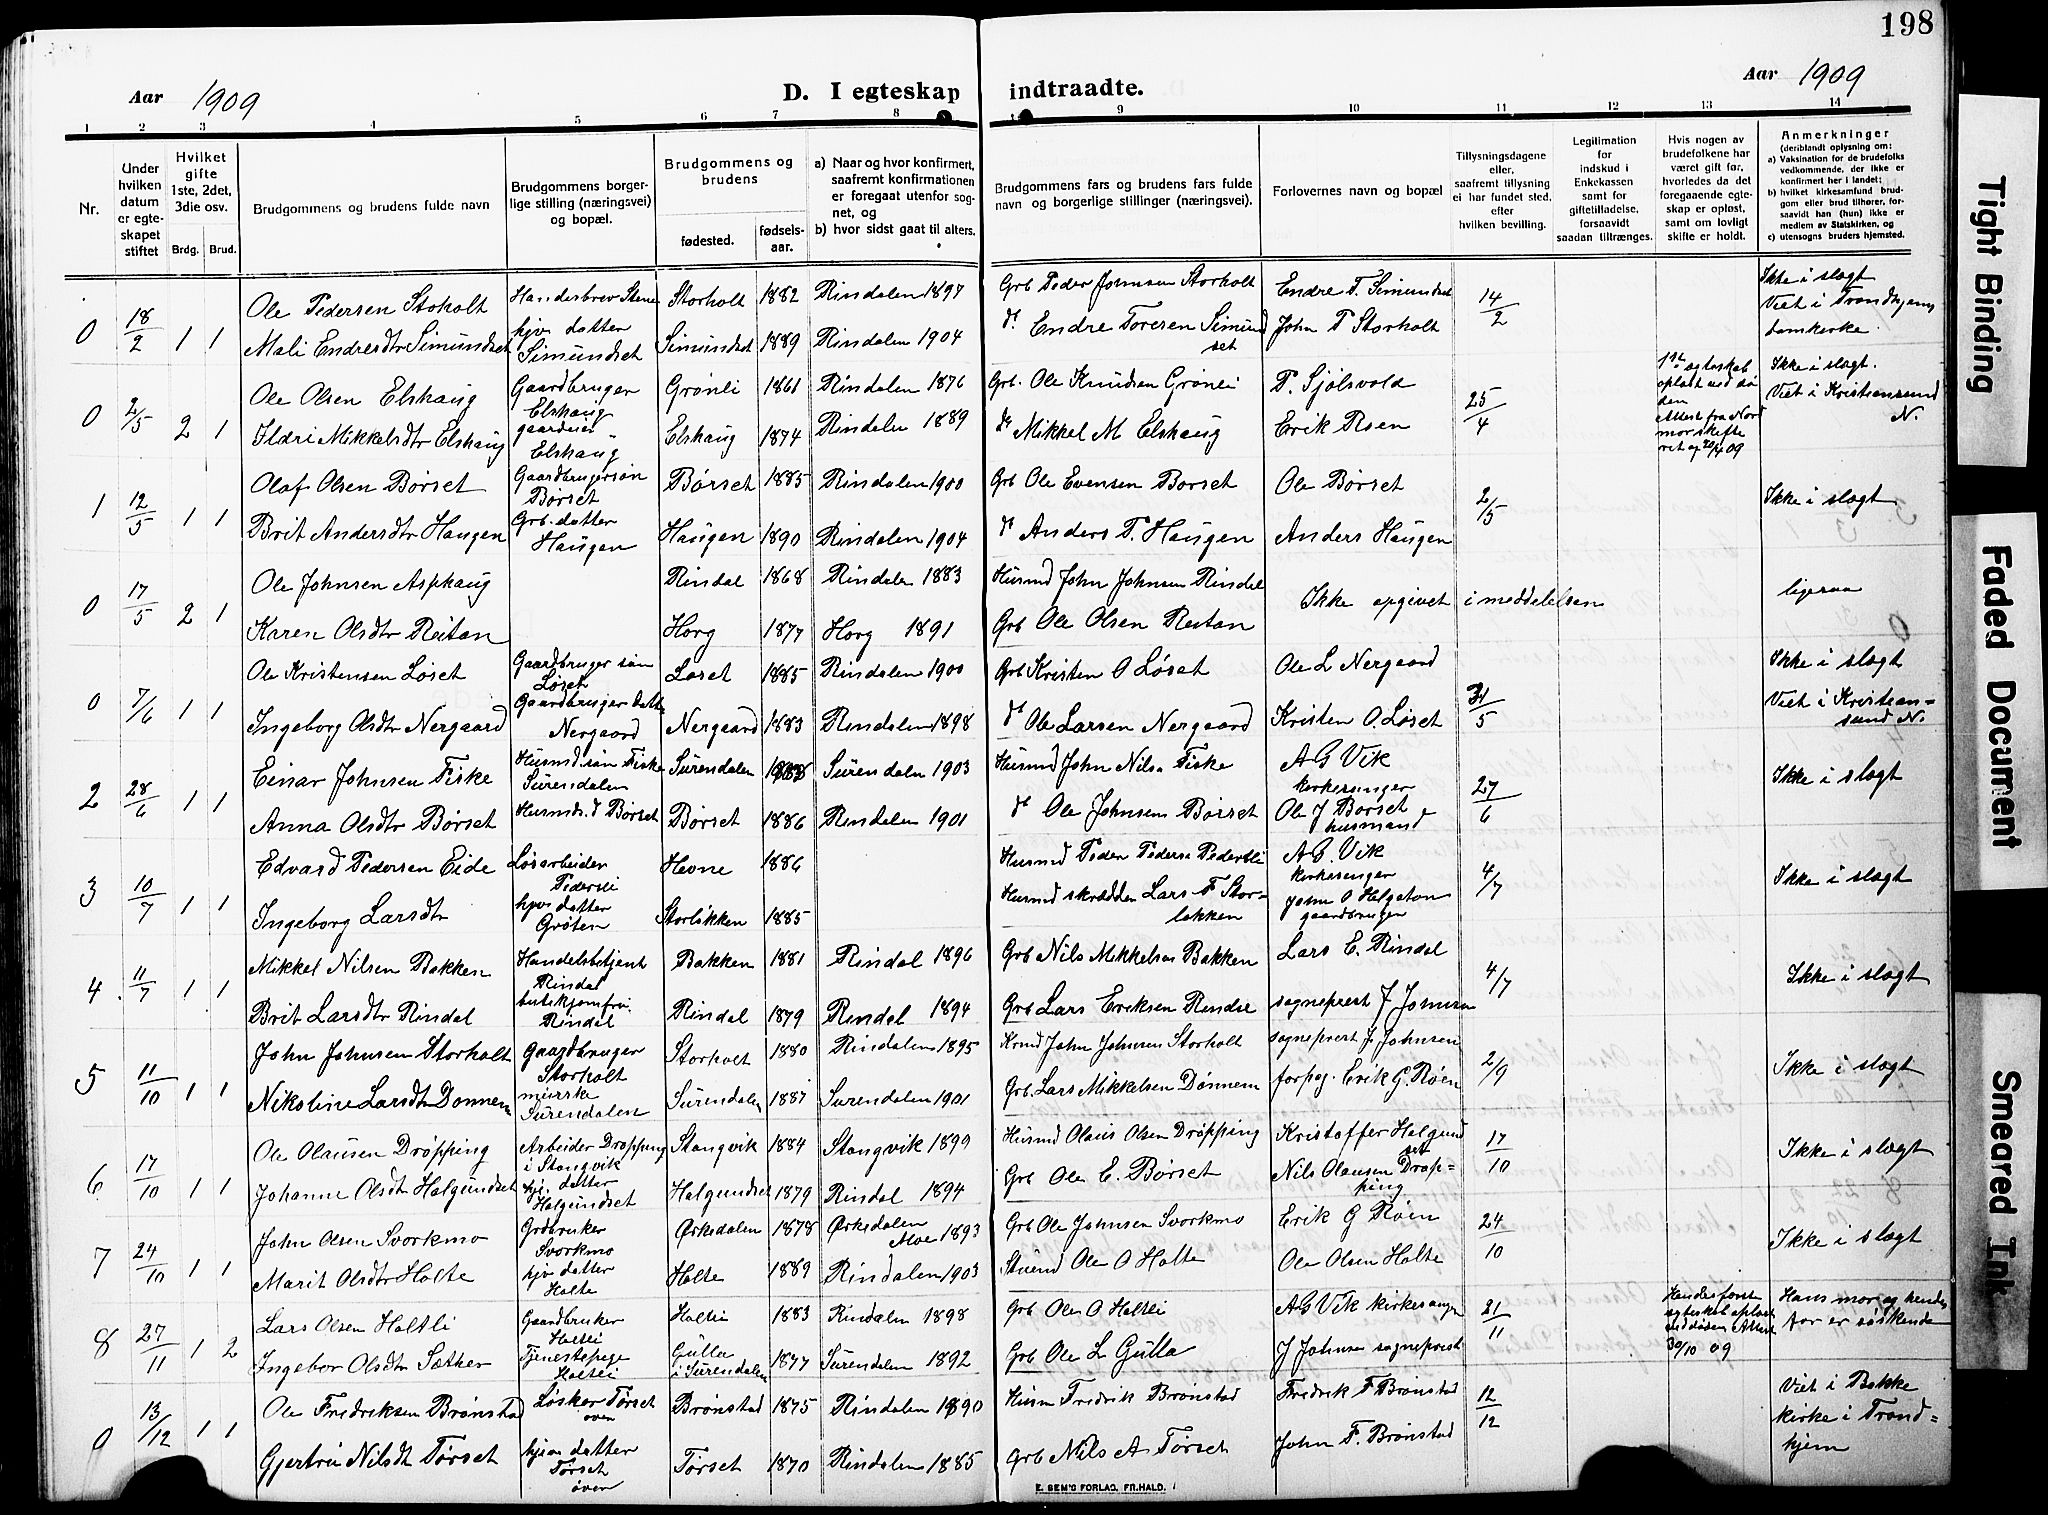 198
Aar 1909
D. I egteskap indtraadte.
Aar 1909
1 2 3 4 5 6 7 8 9 10 11 12 13 14
Nr.
Under hvilken datum er egteskapet stiftet
Hvilket gifte 1ste, 2det, 3die osv.
Brdg. Brud.
Brudgommens og brudens fulde navn
Brudgommens borgerlige stilling (næringsvei) og bopæl.
Brudgommens og brudens
fødested.
fødselsaar.
a) Naar og hvor konfirmert, saafremt konfirmationen er foregaat utenfor sognet, og
b) hvor sidst gaat til alters.
Brudgommens fars og brudens fars fulde navn og borgerlige stillinger (næringsvei).
Forlovernes navn og bopæl
Tillysningsdagene eller, saafremt tillysning ei har fundet sted, efter hvilken bevilling.
Legitimation for indskud i Enkekassen samt for giftetilladelse, forsaavidt saadan tiltrænges.
Hvis nogen av brudefolkene har været gift før, hvorledes da det foregaaende egteskap er opløst, samt om lovligt skifte er holdt.
Anmerkninger
(deriblandt oplysning om:
a) Vaksination for de brudefolks vedkommende, der ikke er konfirmert her i landet;
b) hvilket kirkesamfund brudgom eller brud tilhører, forsaavidt han (hun) ikke er medlem av Statskirken, og
c) utensogns bruders hjemsted.
0 18/2 1 1
Ole Pedersen Stoholt Storholt 1882 Rindalen 1897 Grb Peder Johnsen Storholt Endre T. Simundset 14/2 Ikke i slægt
Mali Endresdtr Simundset hjv datter Simundset Simundset 1889 Rindalen 1904 do Endre Toresen Simundset John P Storholt Viet i Trondhjems domkirke.
0 2/5 2 1
Ole Olsen Elshaug Gaardbruger Elshaug Grønli 1861 Rindalen 1876 Grb. Ole Knudsen Grønli P. Sjølsvold 25/4 Ikke i slægt.
Ildri Mikkelsdtr Elshaug Elshaug Elshaug 1874 Rindalen 1889 do Mikkel M Elshaug Erik Roen Viet i Kristianssund N.
1 12/5 1 1
Olaf Olsen Børset Gaardbrugersøn Børset Børset 1885 Rindalen 1900 Grb Ole Evensen Børset Ole Børset 2/5 Ikke i slægt
Brit Andersdtr Haugen Grb. datter Haugen Haugen 1890 Rindalen 1904 do Anders P. Haugen Anders Haugen
0 17/5 2 1
Ole Johnsen Asphaug Rindal 1868 Rindalen 1883 Husmd John Johnsen Rindal Ikke opgivet i meddelelsen ligesaa
Karen Olsdtr Reitan Horg 1877 Horg 1891 Grb Ole Olsen Reitan
0 7/6 1 1
Ole Kristensen Løset Gaardbruger søn Løset Løset 1885 Rindalen 1900 Grb Kristen O Løset Ole L Nergaard 31/5 Ikke i slægt
Ingeborg Olsdtr Nergaard Gaardbruger datt. Nergaard Nergaard 1883 Rindalen 1898 do Ole Larsen Nergaard Kristen O. Løset Viet i Kristiansund N.
2 28/6 1 1
Einar Johnsen Fiske Husmd. søn Fiske Surendalen Surendalen Surendalen 1903 Husmd John Nilsa Fiske A G Vik kirkesanger 27/6 Ikke i slægt
Anna Olsdtr Børset Husmds. d Børset Børset 1886 Rindalen 1901 do Ole Johnsen Børset Ole J Børset husmand
3 10/7 1 1
Edvard Pedersen Eide Løsarbeider Pedersli Hevne 1886 Husmd Peder Peders Pedersli A G. Vik kirkesanger 4/7 Ikke i slægt
Ingeborg Larsdtr hjvs datter Grøten Storløkken 1885 Husmd skrædder Lars F Storløkken John O Helgetun gaardbruger
4 11/7 1 1
Mikkel Nilsen Bakken Handelsbetjent Rindal Bakken 1881 Rindal 1896 Grb Nils Mikkelsen Bakken Lars E. Rindal 4/7 Ikke i slægt
Brit Larsdtr Rindal butikjomfru Rindal Rindal 1879 Rindal 1894 Grb Lars Eriksen Rindal sogneprest J Johnsen
5 11/10 1 1
John Johnsen Storholt Gaardbruger Storholt Storholt 1880 Rindalen 1895 John Johnsen Storholt sogneprest J. Johnsen 2/9 Ikke i slægt
Nikoline Larsdtr Dønnem Surendalen Surendalen 1887 Surendalen 1901 Grb. Lars Mikkelsen Dønnem forpag. Erik G. Røen
6 17/10 1 1
Ole Olausen Drøpping Arbeider Drøpping i Stangvik Stangvik 1884 Stangvik 1899 Husmd Olaus Olsen Drøpping Kristoffer Halgundset 17/10 Ikke i slægt
Johanne Olsdt Halgundset hj. datter Halgundset Halgundset 1879 Rindal 1894 Grb Ole E. Børset Nils Olausen Drøpping
7 24/10 1 1
John Olsen Svorkmo Grdbruker Svorkmo Ørkedalen 1878 Ørkedalen Moe 1893 Grb Ole Johnsen Svorkmo Erik G Røen 24/10 Ikke i slægt
Marit Olsdtr Holte hjv datter Holte Holte 1889 Rindalen 1903 Ole O Holte Ole Olsen Holte
8 27/11 1 2
Lars Olsen Holtli Gaardbruker Holtli Holtli 1883 Rindalen 1898 Grb Ole O Holtli A G Vik kirkesanger 21/11 Hendes første egteskab opløst ved døden Attest 30/10 09 Hans mor og hendes far er søskende
Ingebor Olsdtr Sæther Tjenestepige Holtli Gulla i Surendalen 1877 Surendalen 1892 Grb Ole L Gulla J Johnsen sogneprest
9 13/12 1 1
Ole Fredriksen Brønstad Tørset øven Brønstad 1875 Rindalen 1890 Husm Fredrik Brønstad Fredrik F Brønstad 12/12 Viet i Bakke kirke i Trondhjem
Gjertru Nilsdt Tørset hjem datter Tørset øven Tørset 1870 Rindalen 1885 Grb Nils A Tørset John F. Brønstad
E. SEM'S FORLAG, FR.HALD.
Tight Binding
Faded Document
Smeared Ink